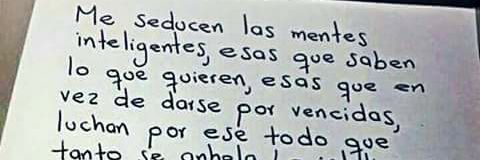 Me seducen las mentes
inteligentes, esas que saben
lo que quieren, esas que en
vez de darse por vencidas,
luchan por ese todo que
tanto se anhela